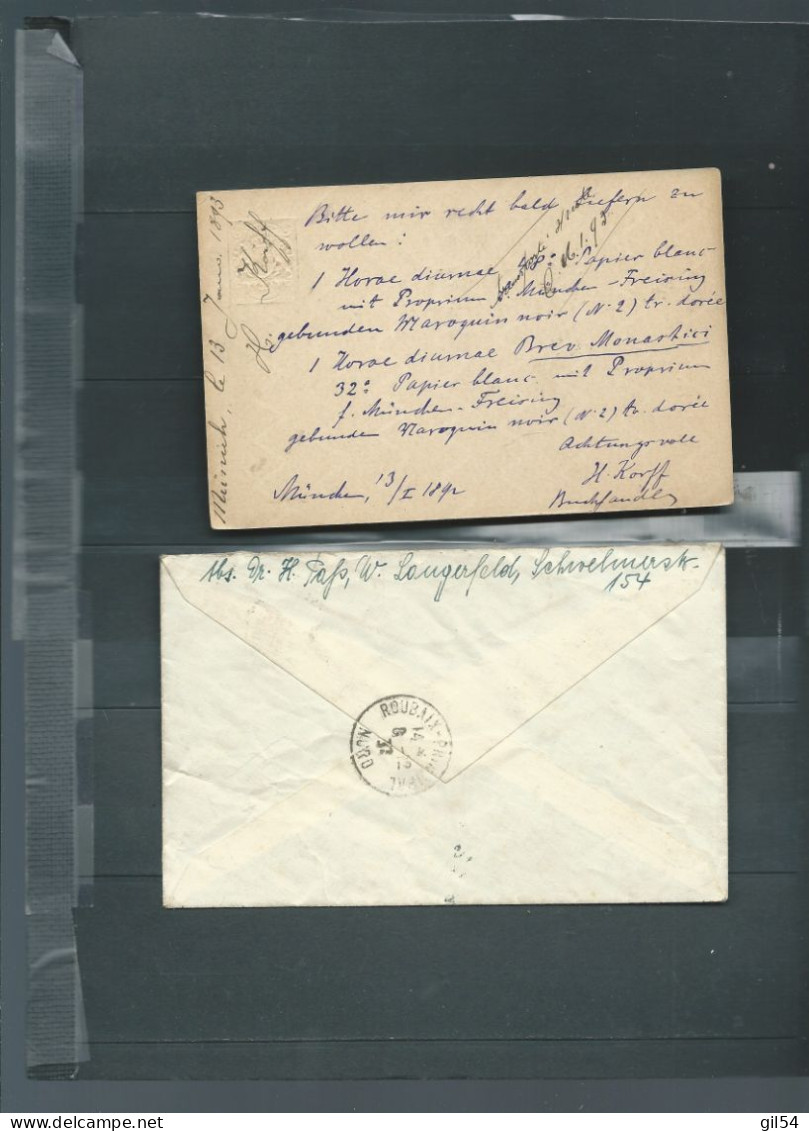 Munich, le 13 Janv. 1893
H. Korff
Bitte mir recht bald liefern zu
wollen:
1 Horae diurnae 18º Papier blanc
mit Proprium München-Freising
gebunden Maroquin noir (N. 2) tr. dorée
1 Horae diurnae Brev. Monastici
32º Papier blanc mit Proprium
f. München-Freising
gebunden Maroquin noir (N. 2) tr. dorée
Achtungsvoll
H. Korff
München, 13/I 1892
Buchhandlg
16.1.93
Abs. Dr. H. Paß, W. Langerfeld, Schwelmerstr.
154
ROUBAIX-PRINCIPAL
NORD